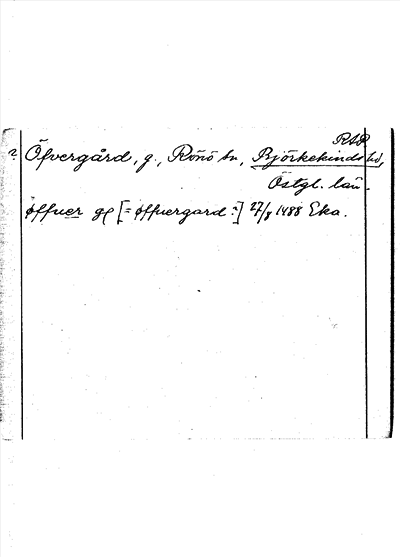 RAP
? Öfvergård, g., Rönö sn, Björkekinds hd,
Östgl. län.
øffuer gl [= øffuergard?] 27/8 1488 Eka.